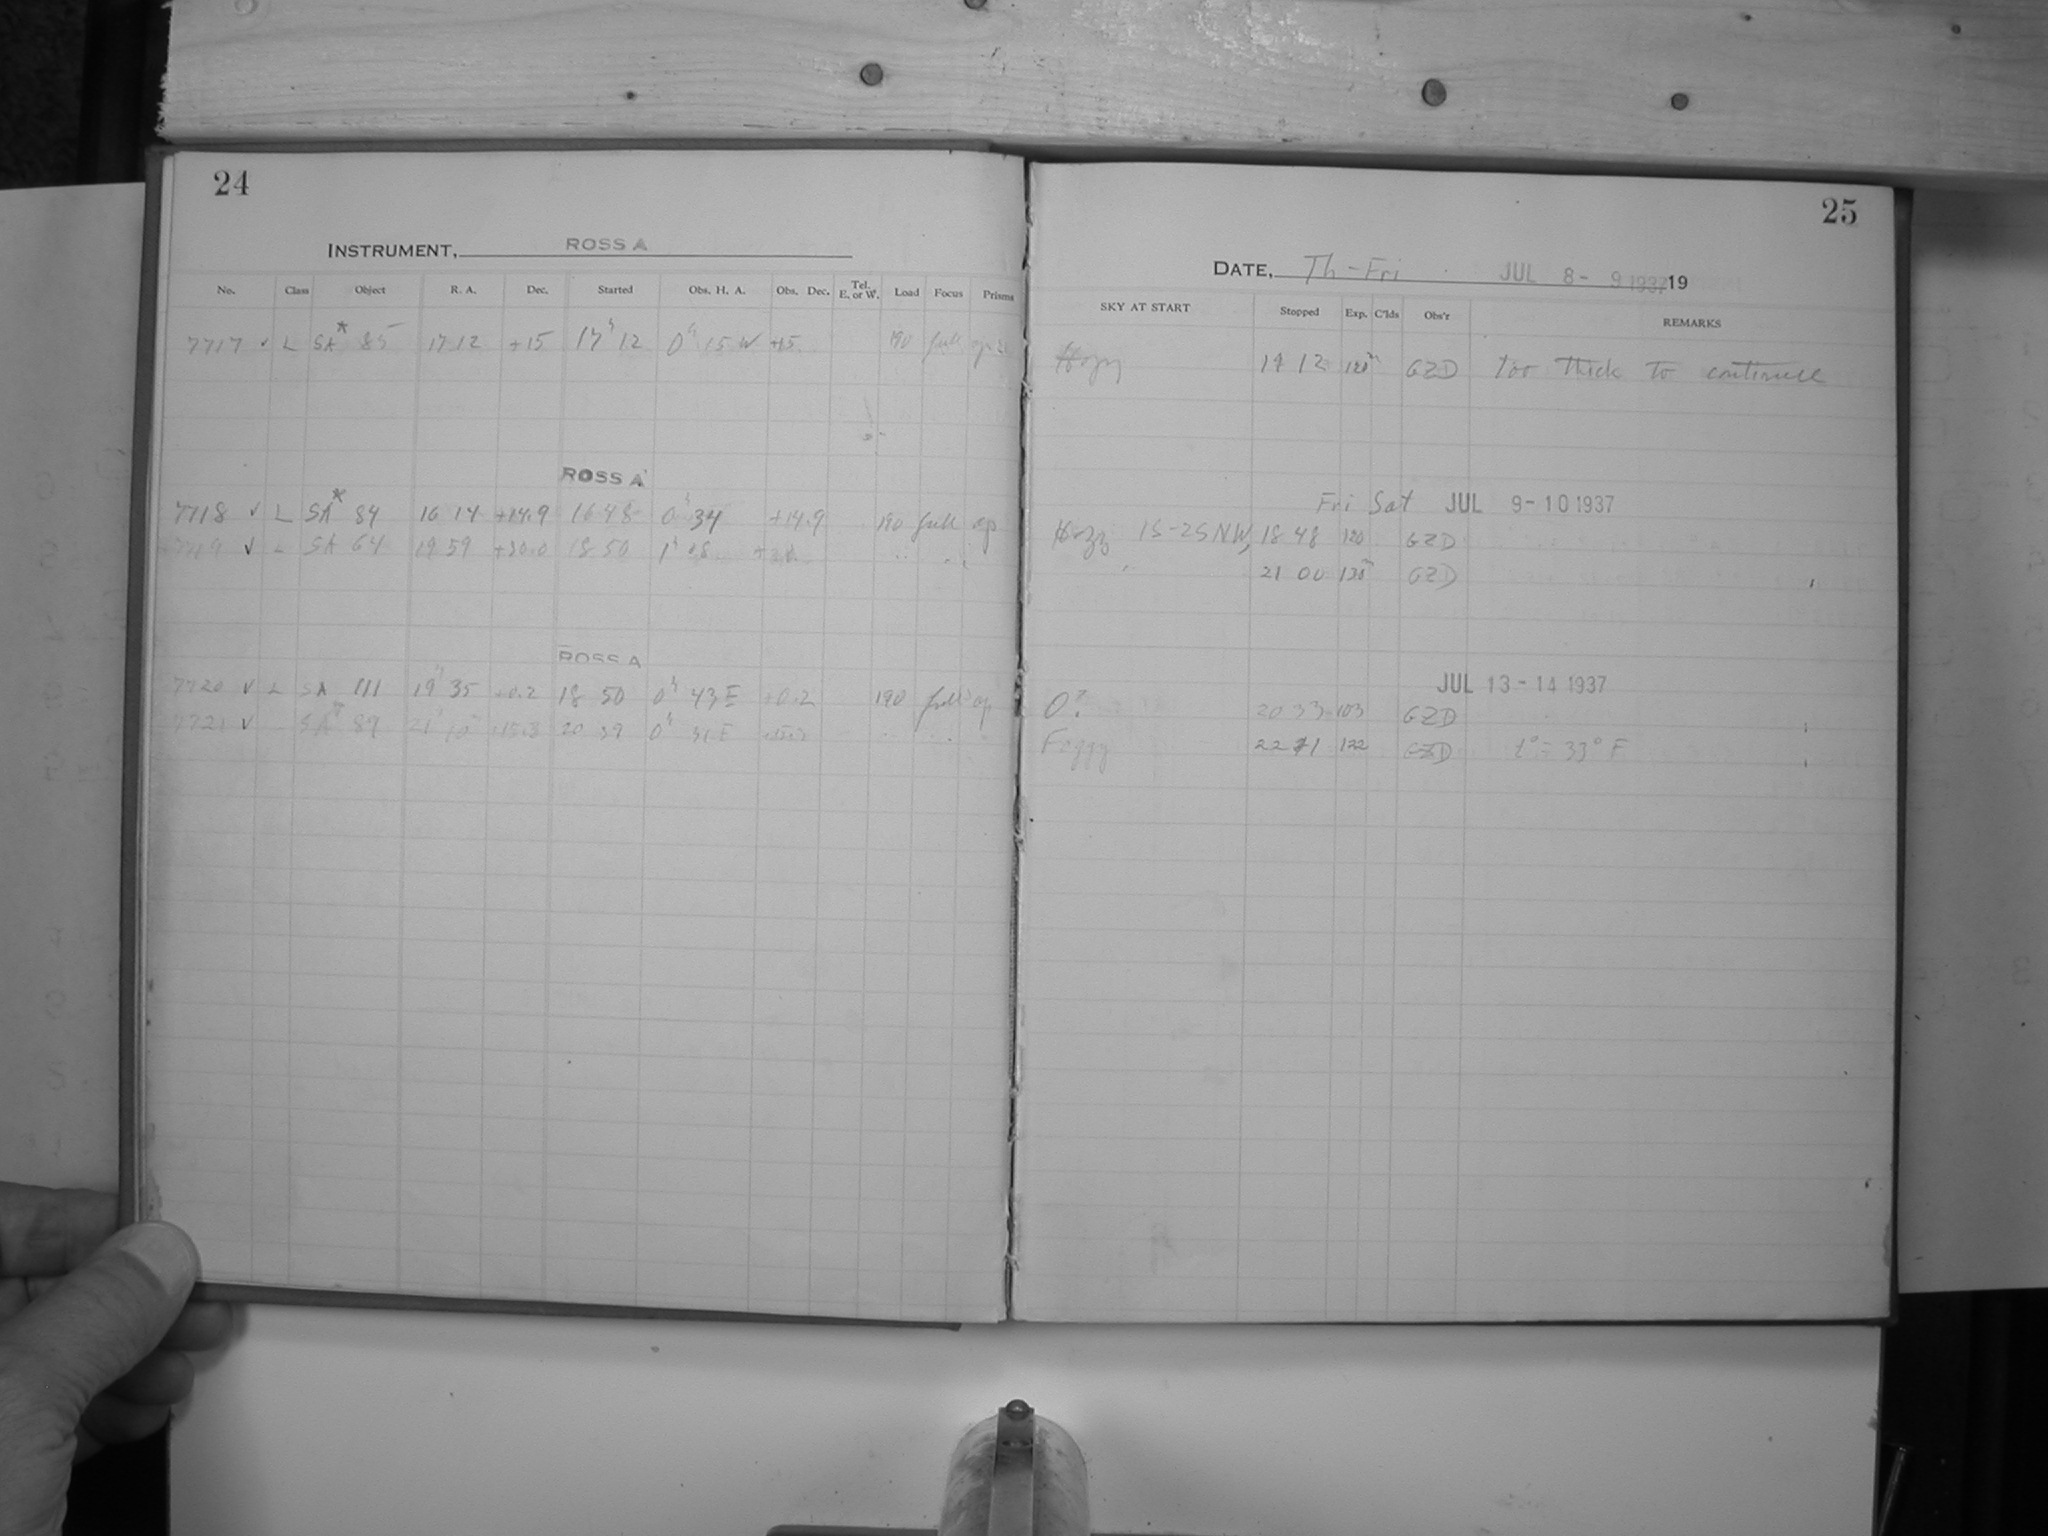 24
INSTRUMENT, ROSS A
No. Class Object R. A. Dec. Started Obs. H. A. Obs. Dec. Tel. E. or W. Load Focus Prisms
7717 ✓ L SA* 85 17 12 +15 17h 12 0h 15 W +15 190 full
ROSS A
7718 ✓ L SA* 84 16 14 +14.9 16 48 0h 34 +14.9 190 full op
7719 ✓ L SA 64 19 59 +30.0 18 50 1h 08
ROSS A
7720 ✓ L SA 111 19h 35 +0.2 18 50 0h 43 E +0.2 190 full op
7721 ✓ SA* 89 21h 10 +15.3 20 39 0h 31 E +15.3
25
DATE, Th-Fri JUL 8-9 1937 19
SKY AT START Stopped Exp. C'lds Obs'r REMARKS
Hazy 19 12 120m GZD too thick to continue
Fri Sat JUL 9-10 1937
Hazy 15-25 NW, 18 48 120 GZD
21 00 135 GZD
JUL 13-14 1937
0? 20 33 103 GZD
Foggy 22 41 122 GZD t° = 33° F